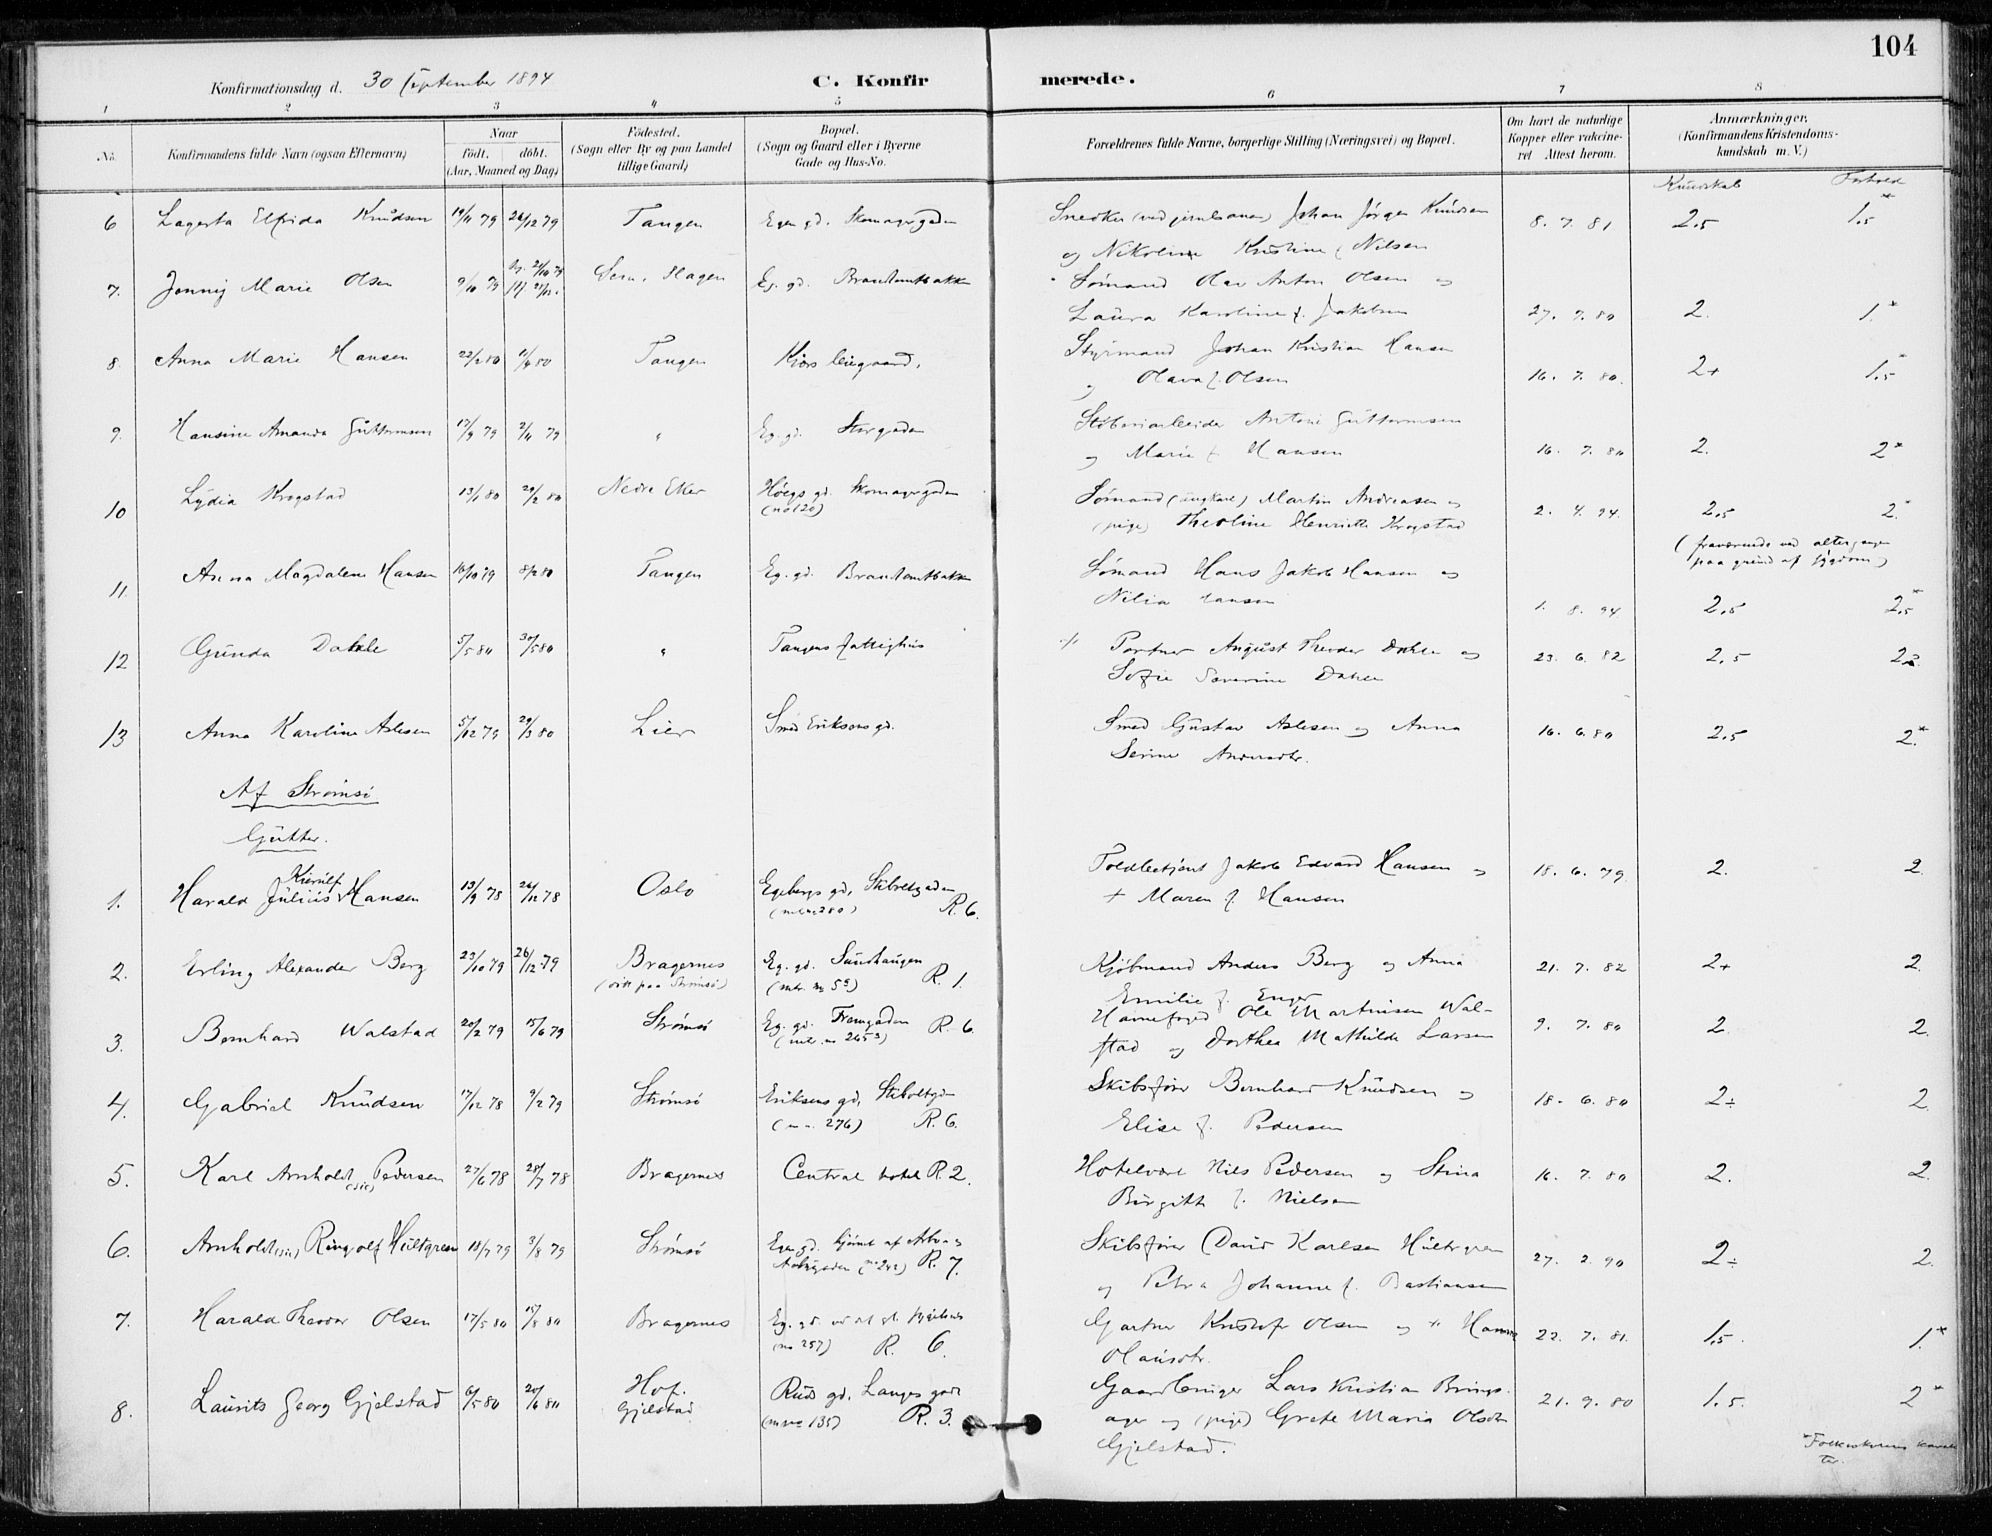 104
Konfirmationsdag d. 30 September 1894
C. Konfirmerede.
1 2 3 4 5 6 7 8
No.
Konfirmandens fulde Navn (ogsaa Efternavn)
Naar
födt. döbt.
(Aar, Maaned og Dag)
Födested.
(Sogn eller By og paa Landet
tillige Gaard)
Bopæl.
(Sogn og Gaard eller i Byerne
Gade og Hus-No.
Forældrenes fulde Navne, borgerlige Stilling (Næringsvei) og Bopæl.
Om havt de naturlige
Kopper eller vakcine-
ret Attest herom.
Anmærkninger.
(Konfirmandens Kristendoms-
kundskab m. V.)
Kundskab Forhold
6 Lagerta Elfrida Knudsen 19/11 79 26/12 79 Tangen Egen gd. Skomagergaden Snedker (ved jernbanen) Johan Jörgen Knudsen 8. 7. 81 2,5 1,5*
og Nikoline Kristine f. Nilsen
7. Jenny Marie Olsen 9/10 79 Sem, Hagen Eg. gd. Brantenbakken Sømand Olav Anton Olsen og
Laura Karoline f. Jakobsen 27. 7. 80 2. 1.*
8. Anna Marie Hansen 22/2 80 1/4 80 Tangen Kiørs leiegaard. Styrmand Johan Kristian Hansen
og Olava f. Olsen 16. 7. 80. 2+ 1,5*
9. Hansine Amanda Guttormsen 17/9 79 2/11 79 " Eg. gd. Storgaden Støberiarbeider Anton Guttormsen
og Marie f. Hansen 16. 7. 80 2. 2*
10 Lydia Krogstad 13/1 80 29/2 80 Nedre Eker Höegs gd. Skomagergaden Sømand (ungkarl) Martin Andreasen og
(no 120) (pige) Theoline Henriette Krogstad 2. 4. 94. 2,5 2.*
(fraværende ved altergangen
paa grund af sygdom)
11. Anna Magdalene Hansen 16/10 79 8/2 80 Tangen Eg. gd. Brantenbakken Sømand Hans Jakob Hansen og
Nilia Hansen 1. 8. 94 2,5 2,5*
12 Gunda Dahle 5/5 80 30/5 80 " Tangens fattighus Portner August Theodor Dahle og 23. 6. 82 2,5
Sofie Severine Dahle
13 Anna Karoline Aslesen 5/12 79 29/3 80 Lier Smed Eriksens gd. Smed Gustav Aslesen og Anna 16. 6. 80 2,5 2.*
Serine Andersdtr.
Af Strømsö
Gutter.
1. Harald Julius Kierulf Hansen 13/9 78 26/12 78 Oslo Egebergs gd, Stiboltgaden Toldbetjent Jakob Edvard Hansen og 18. 6. 79 2. 2.
(mtr no 280) R. 6. + Maren f. Hansen
2. Erling Alexander Berg 23/10 79 26/12 79 Bragernes Eg. gd. Sundhaugen Kjøbmand Anders Berg og Anna 21. 7. 82 2+ 2.
(döbt paa Strömsö) (mtr. no 5a) R. 1. Emilie f. Enger
3. Bernhard Walstad 20/2 79 15/6 79 Strømsö Eg. gd. Tremgaden R. 6. Havnefoged Ole Martinsen Wal- 9. 7. 80 2. 2.
stad og Dorthea Mathilde Larsen
4. Gabriel Knudsen 17/12 78 9/2 79 Strømsö Eriksens gd, Stiboltgdn Skibsfører Bernhard Knudsen og 18. 6. 80 2÷ 2.
(m. n. 276) R. 6. Elise f. Pedersen
5. Karl Arnholdt (sic) Pedersen 27/6 78 28/7 78 Bragernes Central hotel R. 2. Hotelvært Nils Pedersen og Stina 16. 7. 80 2. 2.
Birgitte f. Nielsen
6. Arnholdt (sic) Ringolf Hultgreen 18/7 79 3/8 79 Strømsö Egen gd. hjörnet af Skibsfører David Karlsen Hultgreen 27. 2. 90 2÷ 2.
R. 7. og Petra Johanne f. Bastiansen
7. Harald Theodor Olsen 17/5 80 15/8 80 Bragernes Eg. gd. ved det gl. sygehus Gartner Kristofer Olsen og + Hanna 22. 7. 81. 1,5. 1.*
(no 257) R. 6. Olausdtr.
8. Laurits Georg Gjelstad 6/5 80 20/6 80 Hof. Ruds gd, Langes gade Gaardbruger Lars Kristian Brings- 21. 9. 80 1.5. 2*
Gjelstad (mno 135) R. 3. ager og (pige) Grete Maria Olsdtr
Gjelstad.
*Folkeskolens karak-
ter.